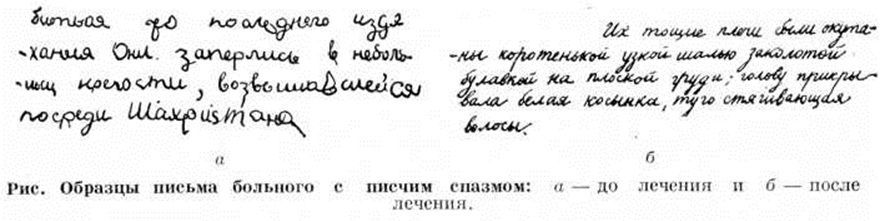 биться до последнего изды
-хания Они. заперлись в неболь-
-шой крепости, возвышавшейся
посреди Шахристана
Их тощие плечи были окута-
-ны коротенькой узкой шалью заколотой
булавкой на плоской груди; голову прикры-
вала белая косынка, туго стягивающая
волосы.
а
б
Рис. Образцы письма больного с писчим спазмом: а — до лечения и б — после
лечения.